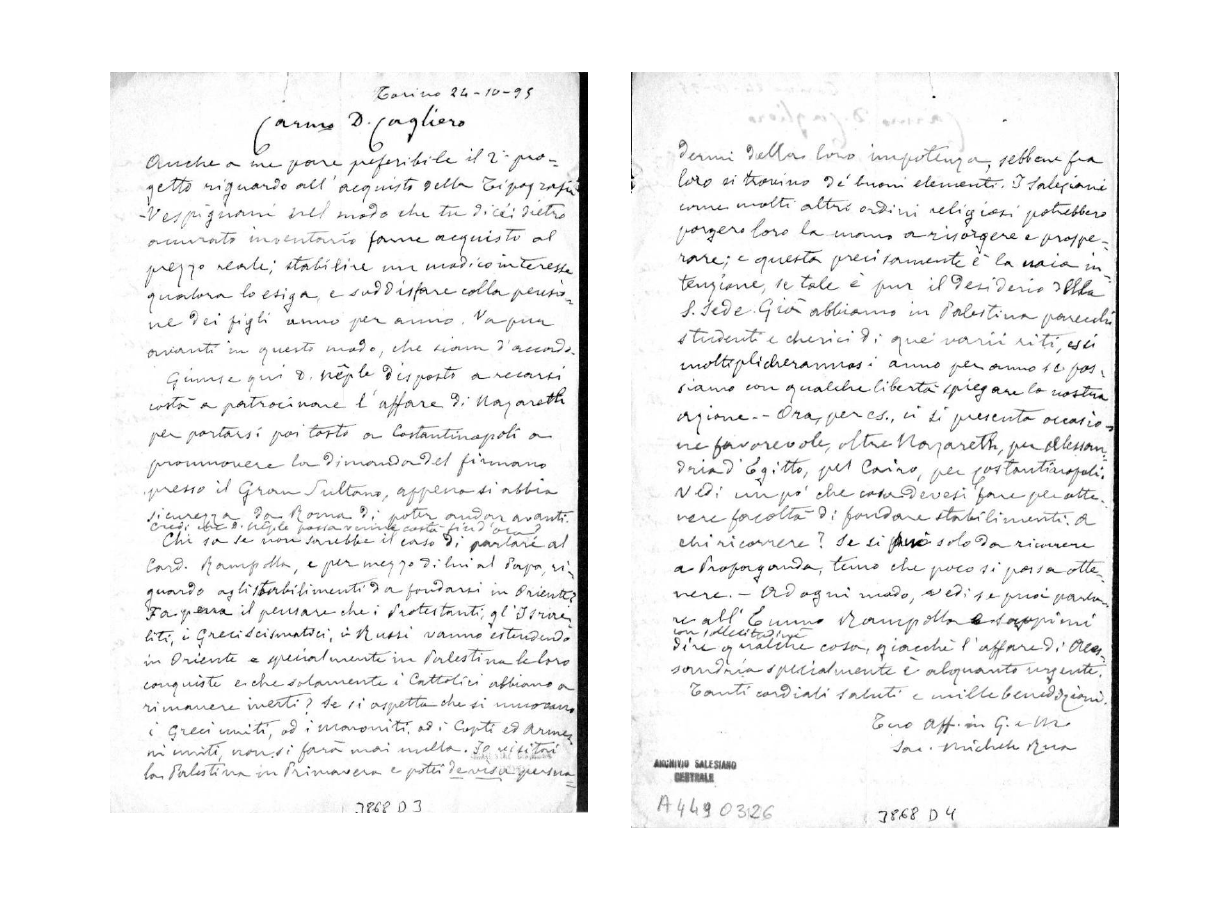 Torino 24-10-95
Carmo D. Cagliero
Anche a me pare preferibile il 2° pro-
getto riguardo all'acquisto della Tipografia
Vespignani nel modo che tu dici: dietro
accurato inventario farne acquisto al
prezzo reale; stabilire un modico interesse
qualora lo esiga, e soddisfare colla pensio-
ne dei figli anno per anno. Va pur
avanti in questo modo, che siam d'accordo.
Giunse qui D. Nèple disposto a recarsi
costà a patrocinare l'affare di Nazareth
per portarsi poi tosto a Costantinopoli a
promuovere la dimanda del firmano
presso il Gran Sultano, appena si abbia
sicurezza da Roma di poter andar avanti.
Credi che D. Nèple possa venire costà fin d'ora?
Chi sa se non sarebbe il caso di parlare al
Card. Rampolla, e per mezzo di lui al Papa, ri-
guardo agli stabilimenti da fondarsi in Oriente?
Fa pena il pensare che i Protestanti, gl'Israe-
liti, i Greci Scismatici, i Russi vanno estendendo
in Oriente e specialmente in Palestina le loro
conquiste e che solamente i Cattolici abbiano a
rimanere inerti? Se si aspetta che si muovano
i Greci uniti, od i Maroniti, od i Copti ed Arme-
ni uniti, non si farà mai nulla. Io visitai
la Palestina in Primavera e potei de visu persua-
3868 D 3
dermi della loro impotenza, sebbene fra
loro si trovino de' buoni elementi. I Salesiani
come molti altri ordini religiosi potrebbero
porgere loro la mano a risorgere e prospe-
rare; e questa precisamente è la mia in-
tenzione, se tale è pur il desiderio della
S. Sede. Già abbiamo in Palestina parecchi
studenti e chierici di que' varii riti, essi
moltiplicherannosi anno per anno se pos-
siamo con qualche libertà spiegare la nostra
azione. - Ora, per es., ci si presenta occasio-
ne favorevole, oltre Nazareth, per Alessan-
dria d'Egitto, pel Cairo, per Costantinopoli.
Vedi un po' che cosa devesi fare per otte-
nere facoltà di fondare stabilimenti. A
chi ricorrere? Se si può solo da ricorrere
a Propaganda, temo che poco si possa otte-
nere. - Ad ogni modo, vedi se puoi parla-
re all'Emmo Rampolla e sappimi
con sollecitudine
dire qualche cosa, giacchè l'affare di Ales-
sandria specialmente è alquanto urgente.
Tanti cordiali saluti e mille benedizioni.
Tuo Aff. in G. e M.
Sac. Michele Rua
ARCHIVIO SALESIANO
CENTRALE
A4490326
3868 D 4